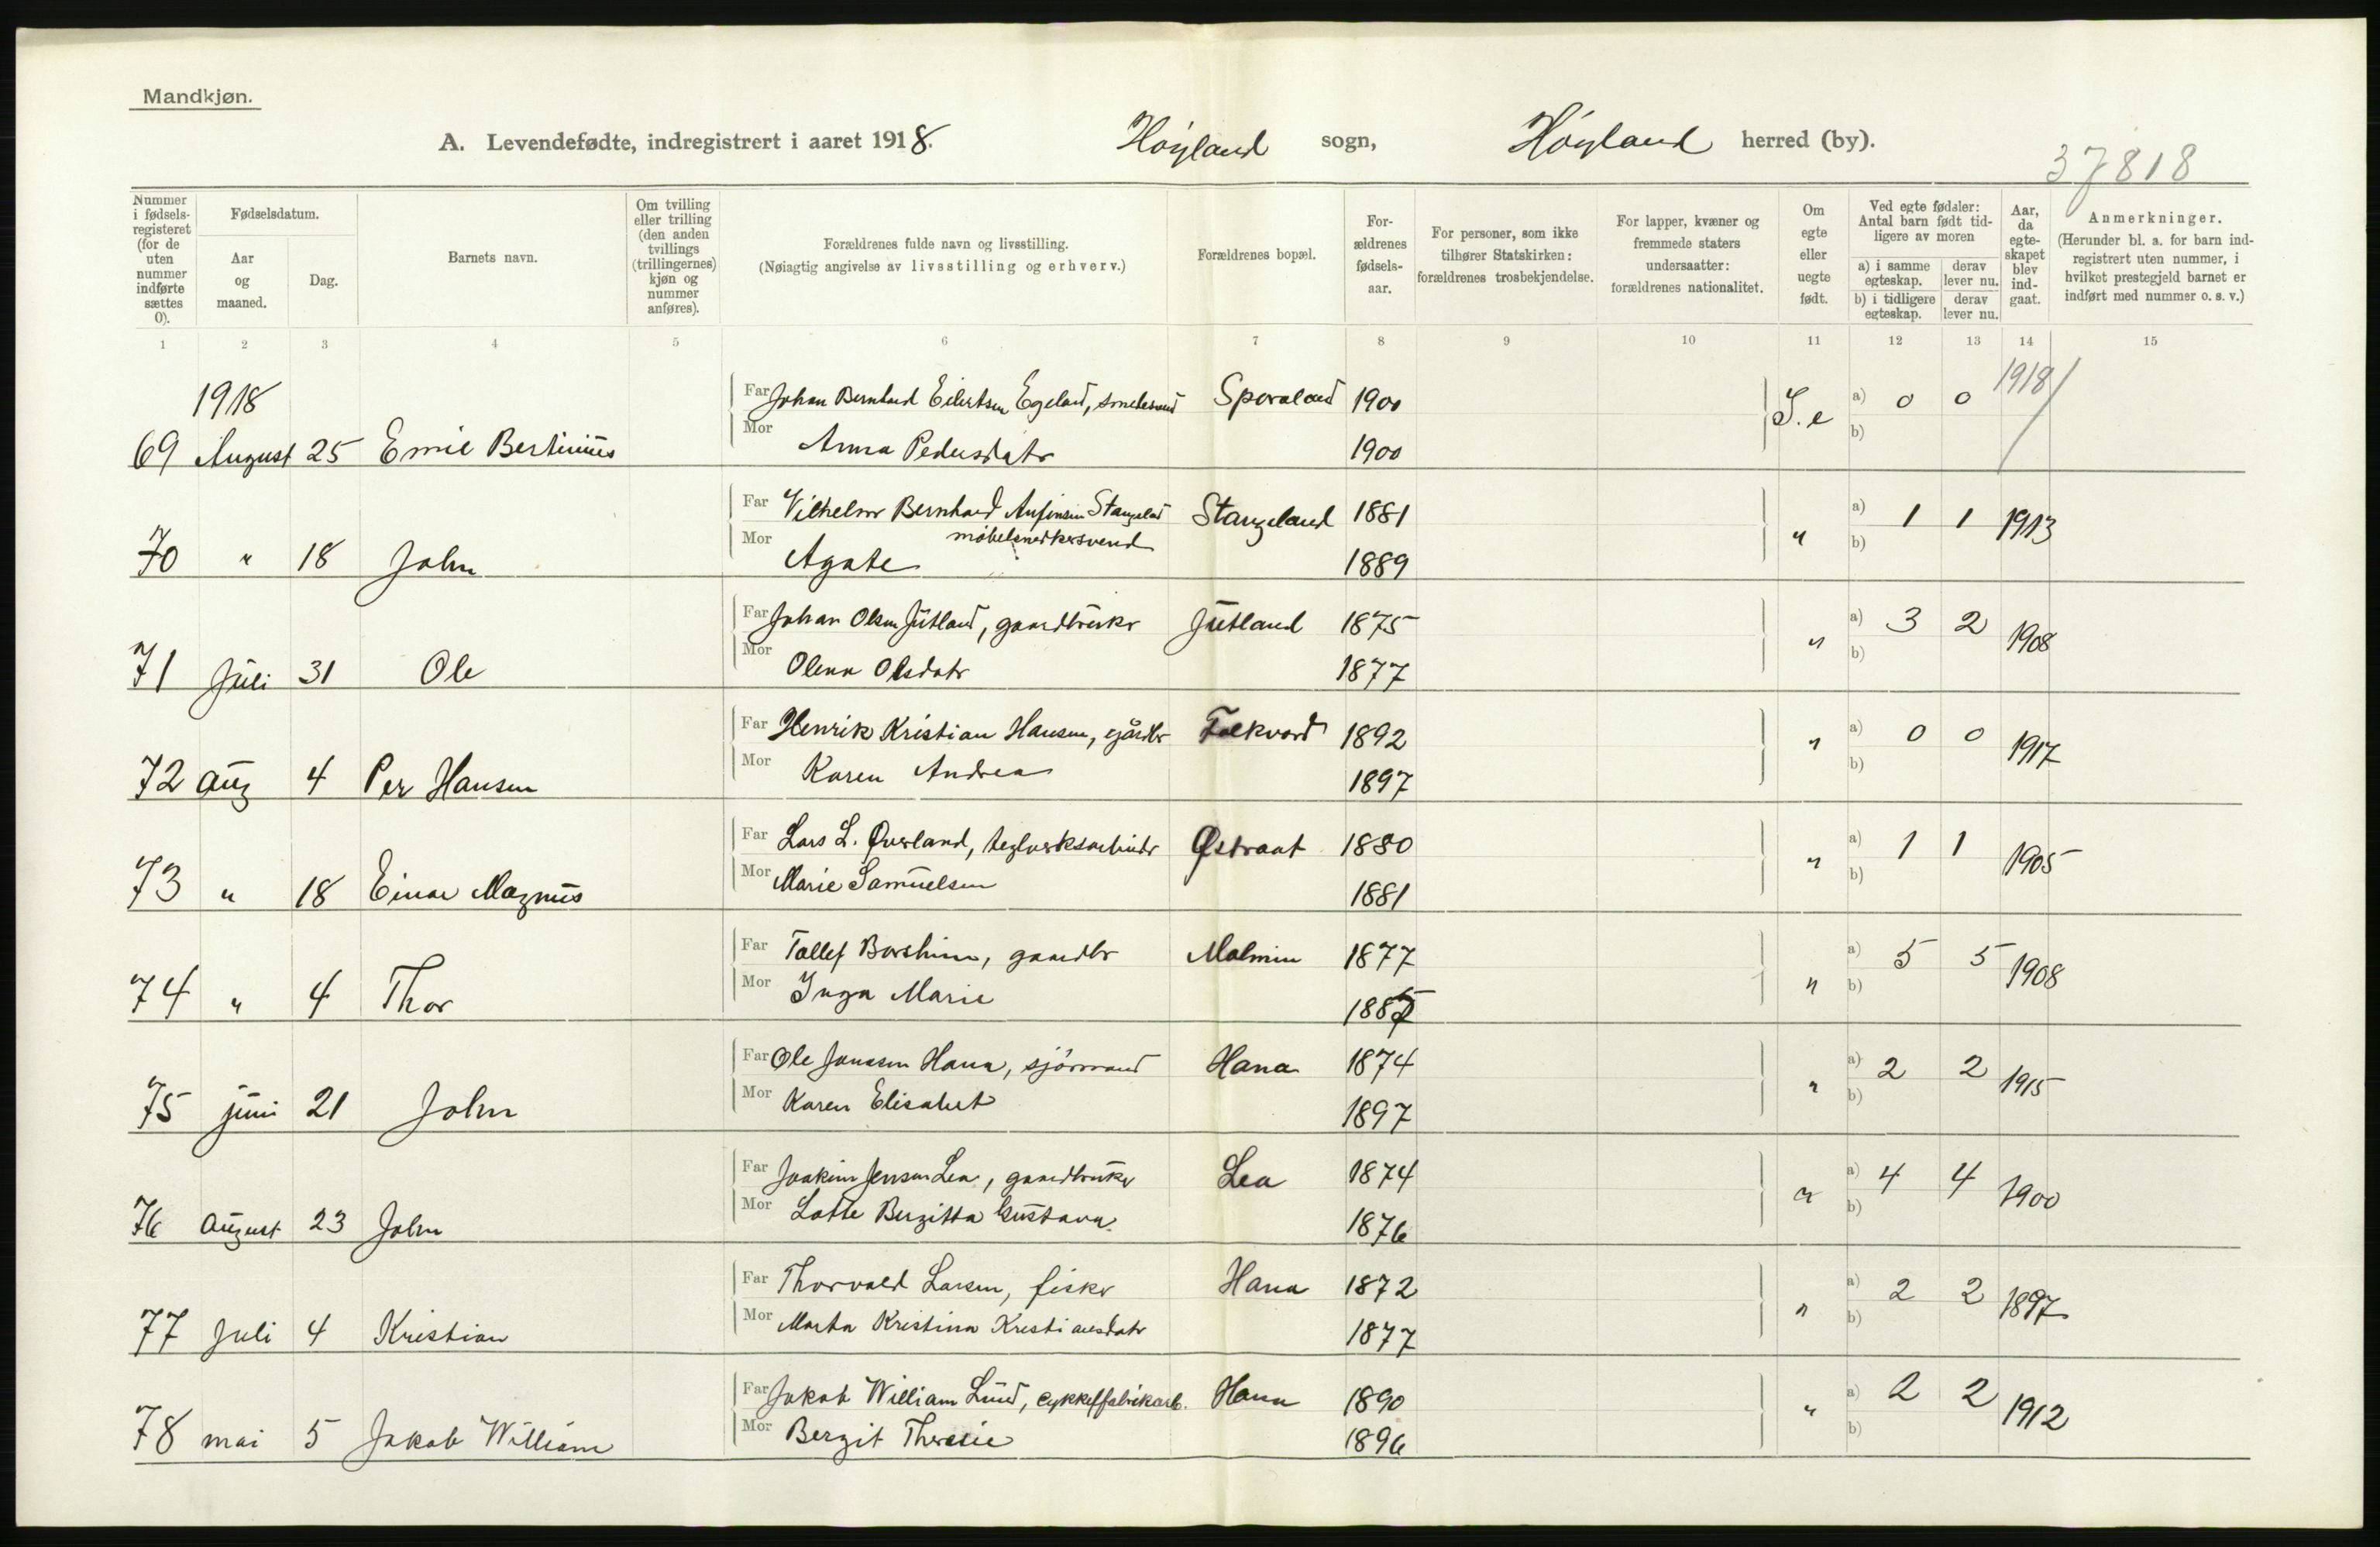 Mandkjøn.
A. Levendefødte, indregistrert i aaret 1918. Høyland sogn, Høyland herred (by).
37818
Nummer i fødsels-registeret (for de uten nummer indførte sættes 0).
Fødselsdatum.
Aar og maaned.
Dag.
Barnets navn.
Om tvilling eller trilling (den anden tvillings (trillingernes) kjøn og nummer anføres).
Forældrenes fulde navn og livsstilling.
(Nøiagtig angivelse av livsstilling og erhverv.)
Forældrenes bopæl.
For-ældrenes fødsels-aar.
For personer, som ikke tilhører Statskirken: forældrenes trosbekjendelse.
For lapper, kvæner og fremmede staters undersaatter: forældrenes nationalitet.
Om egte eller uegte født.
Ved egte fødsler: Antal barn født tid-ligere av moren
a) i samme egteskap. derav lever nu.
b) i tidligere egteskap. derav lever nu.
Aar, da egte-skapet blev ind-gaat.
Anmerkninger.
(Herunder bl. a. for barn ind-registrert uten nummer, i hvilket prestegjeld barnet er indført med nummer o. s. v.)
1 2 3 4 5 6 7 8 9 10 11 12 13 14 15
1918
Far Johan Bernhard Eilertsen Egeland, smedesvend Sporaland 1900 I. e a) 0 0 1918
69 August 25 Emil Bertinius Mor Anna Pedersdatr 1900 b)
Far Vilhelm Bernhard Anfinsen Stangeland Stangeland 1881 " a) 1 1 1913
møbelsnedkersvend
70 " 18 John Mor Agate 1889 b)
Far Johan Olsen Jutland, gaardbruker Jutland 1875 " a) 3 2 1908
71 Juli 31 Ole Mor Olena Olsdatr 1877 b)
Far Henrik Kristian Hansen, gårdbr Folkvord 1892 " a) 0 0 1917
72 aug 4 Per Hansen Mor Karen Andrea 1897 b)
Far Lars L. Øverland, teglverksarbeider Østraat 1880 " a) 1 1 1905
73 " 18 Einar Magnus Mor Marie Samuelsen 1881 b)
Far Tollef Borsheim, gaardbr Malmin 1877 " a) 5 5 1908
74 " 4 Thor Mor Inga Marie b)
Far Ole Jonassen Hana, sjømand Hana 1874 " a) 2 2 1915
75 juni 21 John Mor Karen Elisabet 1897 b)
Far Joakim Jensen Lea, gaardbruker Lea 1874 " a) 4 4 1900
76 august 23 John Mor Lotte Bergitta Gustava 1876 b)
Far Thorvald Larsen, fisker Hana 1872 " a) 2 2 1897
77 juli 4 Kristian Mor Marta Kristina Kristiansdatr 1877 b)
Far Jakob William Lund, cykkelfabrikarb. Hana 1890 " a) 2 2 1912
78 mai 5 Jakob William Mor Bergit Theresie 1896 b)